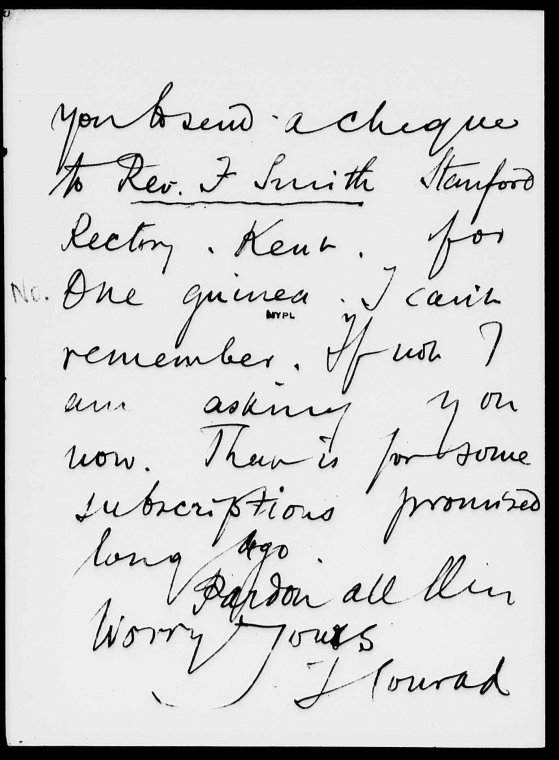 you to send a cheque
to Rev. F Smith Stanford
Rectory. Kent. for
No. One guinea. I can't
NYPL
remember. If not I
am asking you
now. That is for some
subscriptions promised
long ago.
Pardon all this
worry Yours
J Conrad